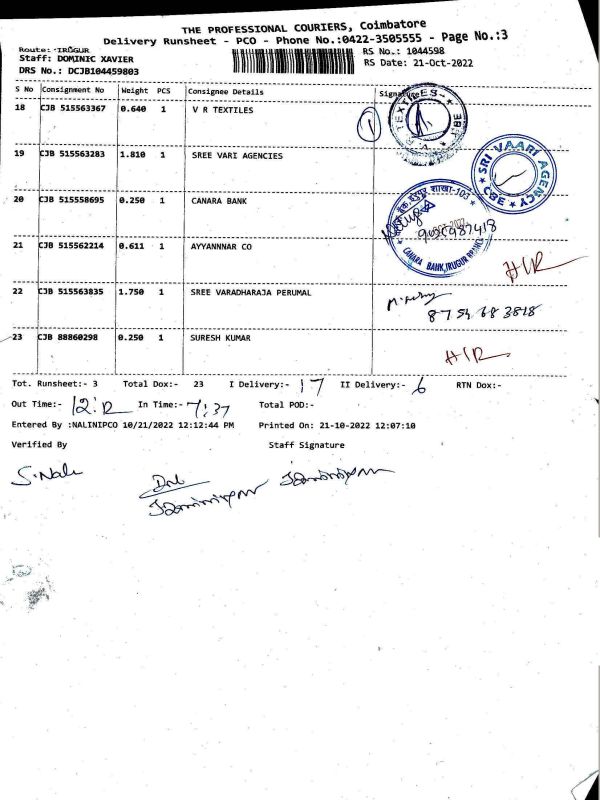 THE PROFESSIONAL COURIERS, Coimbatore
Delivery Runsheet - PCO - Phone No.:0422-3505555 - Page No.:3
Route: IRUGUR
RS No.: 1044598
Staff: DOMINIC XAVIER
RS Date: 21-Oct-2022
DRS No.: DCJB104459803
S No Consignment No Weight PCS Consignee Details Signature
18 CJB 515563367 0.640 1 V R TEXTILES
V.R TEXTILES
19 CJB 515563283 1.810 1 SREE VARI AGENCIES
SRI VAARI AGENCY
CBE
20 CJB 515558695 0.250 1 CANARA BANK
CANARA BANK, IRUGUR BRANCH
21 CJB 515562214 0.611 1 AYYANNNAR CO
22 CJB 515563835 1.750 1 SREE VARADHARAJA PERUMAL
23 CJB 88860298 0.250 1 SURESH KUMAR
Tot. Runsheet:- 3 Total Dox:- 23 I Delivery:- 17 II Delivery:- 6 RTN Dox:-
Out Time:- 12:12 In Time:- 7:37 Total POD:-
Entered By :NALINIPCO 10/21/2022 12:12:44 PM Printed On: 21-10-2022 12:07:10
Verified By Staff Signature